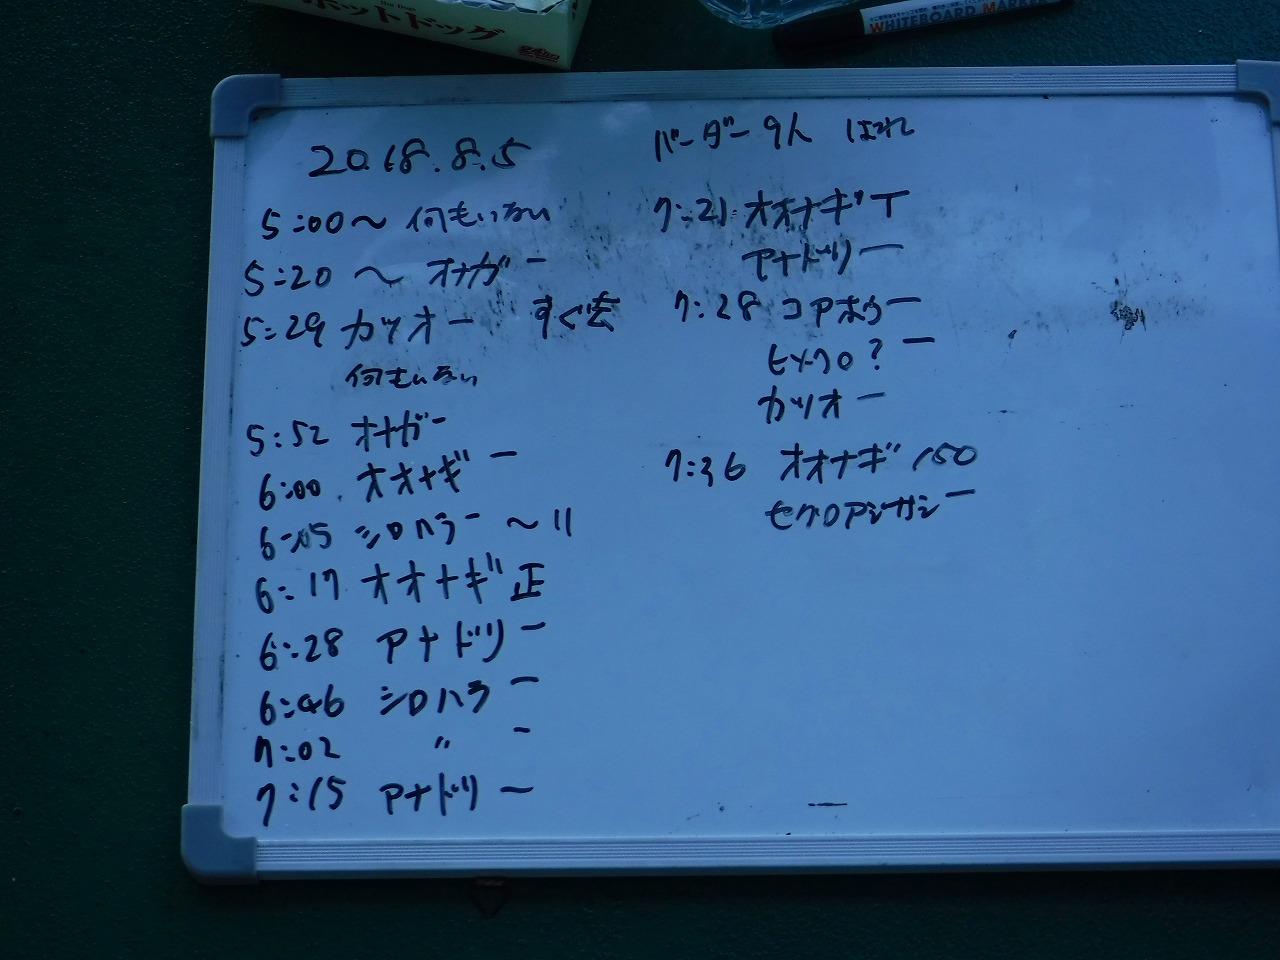 ホットドッグ
WHITEBOARD MARKER
2018.8.5
バーダー9人 はれ
5:00〜 何もいない
5:20 〜 オナガ 一
5:29 カツオ 一 すぐ去
何もいない
5:52 オナガ 一
6:00 オオナギ 一
6:05 シロハラ 一 〜11
6:17 オオナギ 正
6:28 アナドリ 一
6:46 シロハラ 一
7:02 〃 一
7:15 アナドリ 一
7:21 オオナギ T
アナドリ 一
7:28 コアホウ 一
ヒメクロ? 一
カツオ 一
7:36 オオナギ 150
セグロアジサシ 一